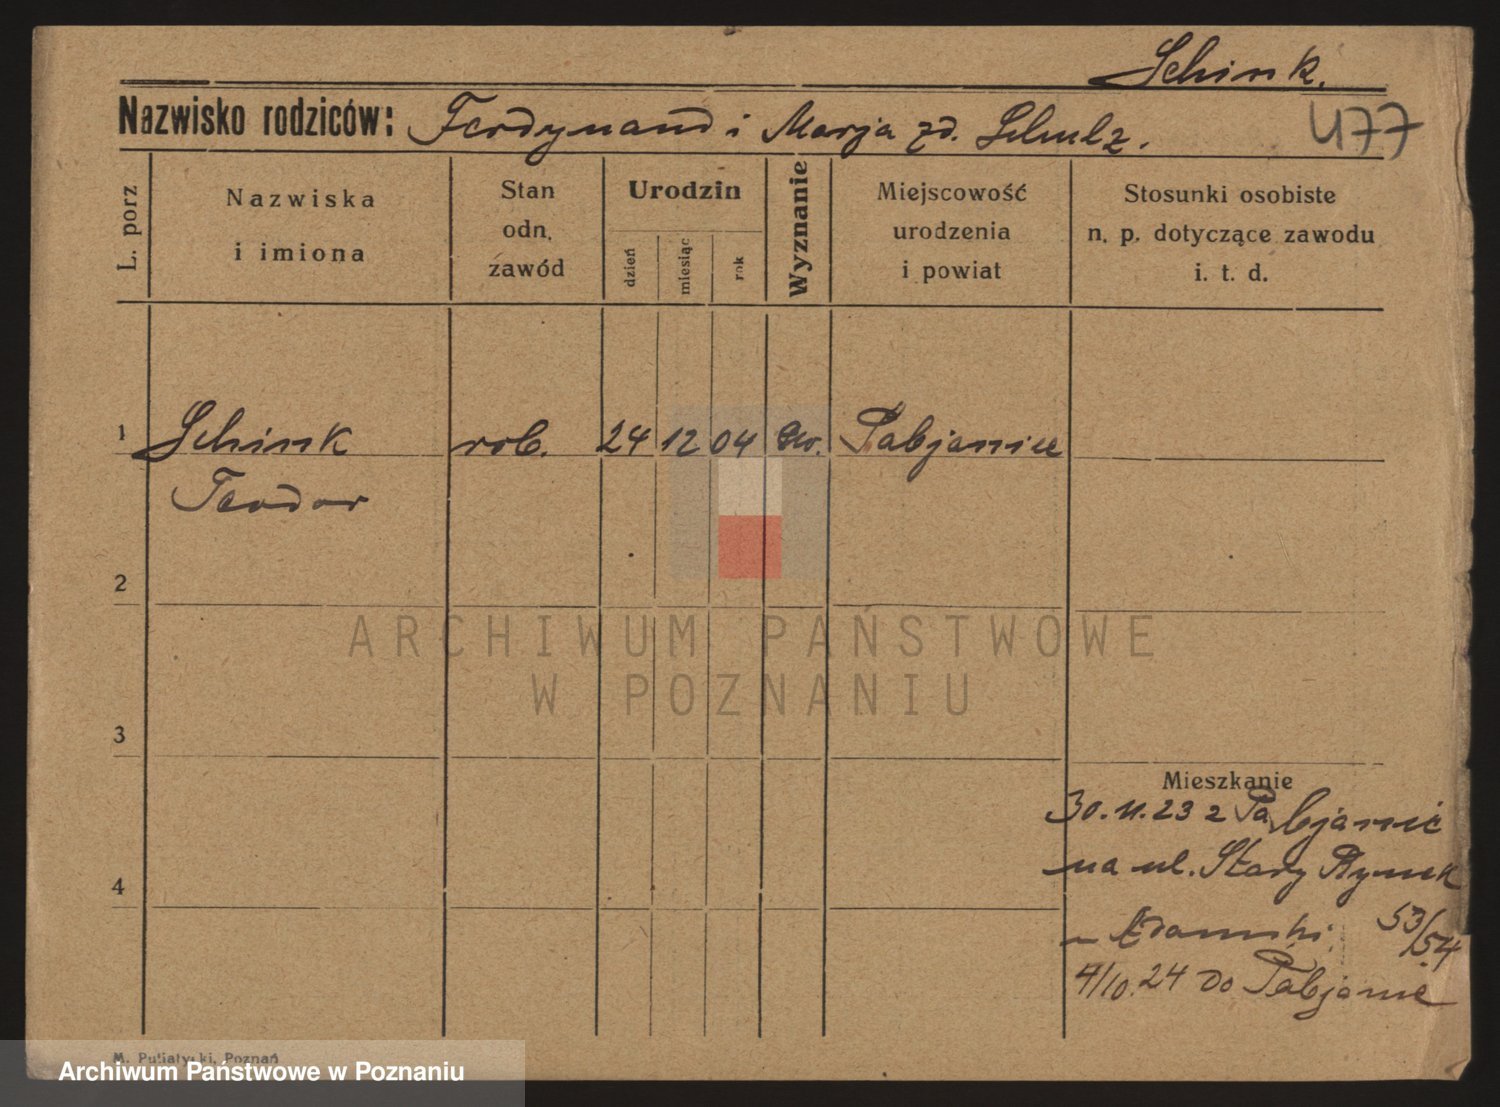 Schink.
477
Nazwisko rodziców: Ferdynand i Marja zd. Schulz.
L. porz
Nazwiska
i imiona
Stan
odn.
zawód
Urodzin
dzień
miesiąc
rok
Wyznanie
Miejscowość
urodzenia
i powiat
Stosunki osobiste
n. p. dotyczące zawodu
i. t. d.
1 Schink rob. 24 12 04 Ew. Pabjanice
Teodor
2
3
4
Mieszkanie
30.11.23 z Pabjanic
na ul. Stary Rynek
53/54
4/10.24 do Pabjanic
M. Putiatycki, Poznań
ARCHIWUM PAŃSTWOWE
W POZNANIU
Archiwum Państwowe w Poznaniu